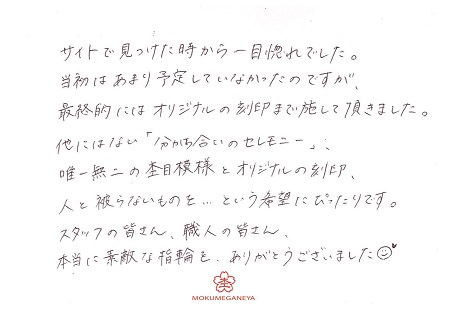 サイトで見つけた時から一目惚れでした。
当初はあまり予定していなかったのですが、
最終的にはオリジナルの刻印まで施して頂きました。
他にはない「分かち合いのセレモニー」、
唯一無二の杢目模様とオリジナルの刻印、
人と被らないものを…という希望にぴったりです。
スタッフの皆さん、職人の皆さん、
本当に素敵な指輪を、ありがとうございました
MOKUMEGANEYA